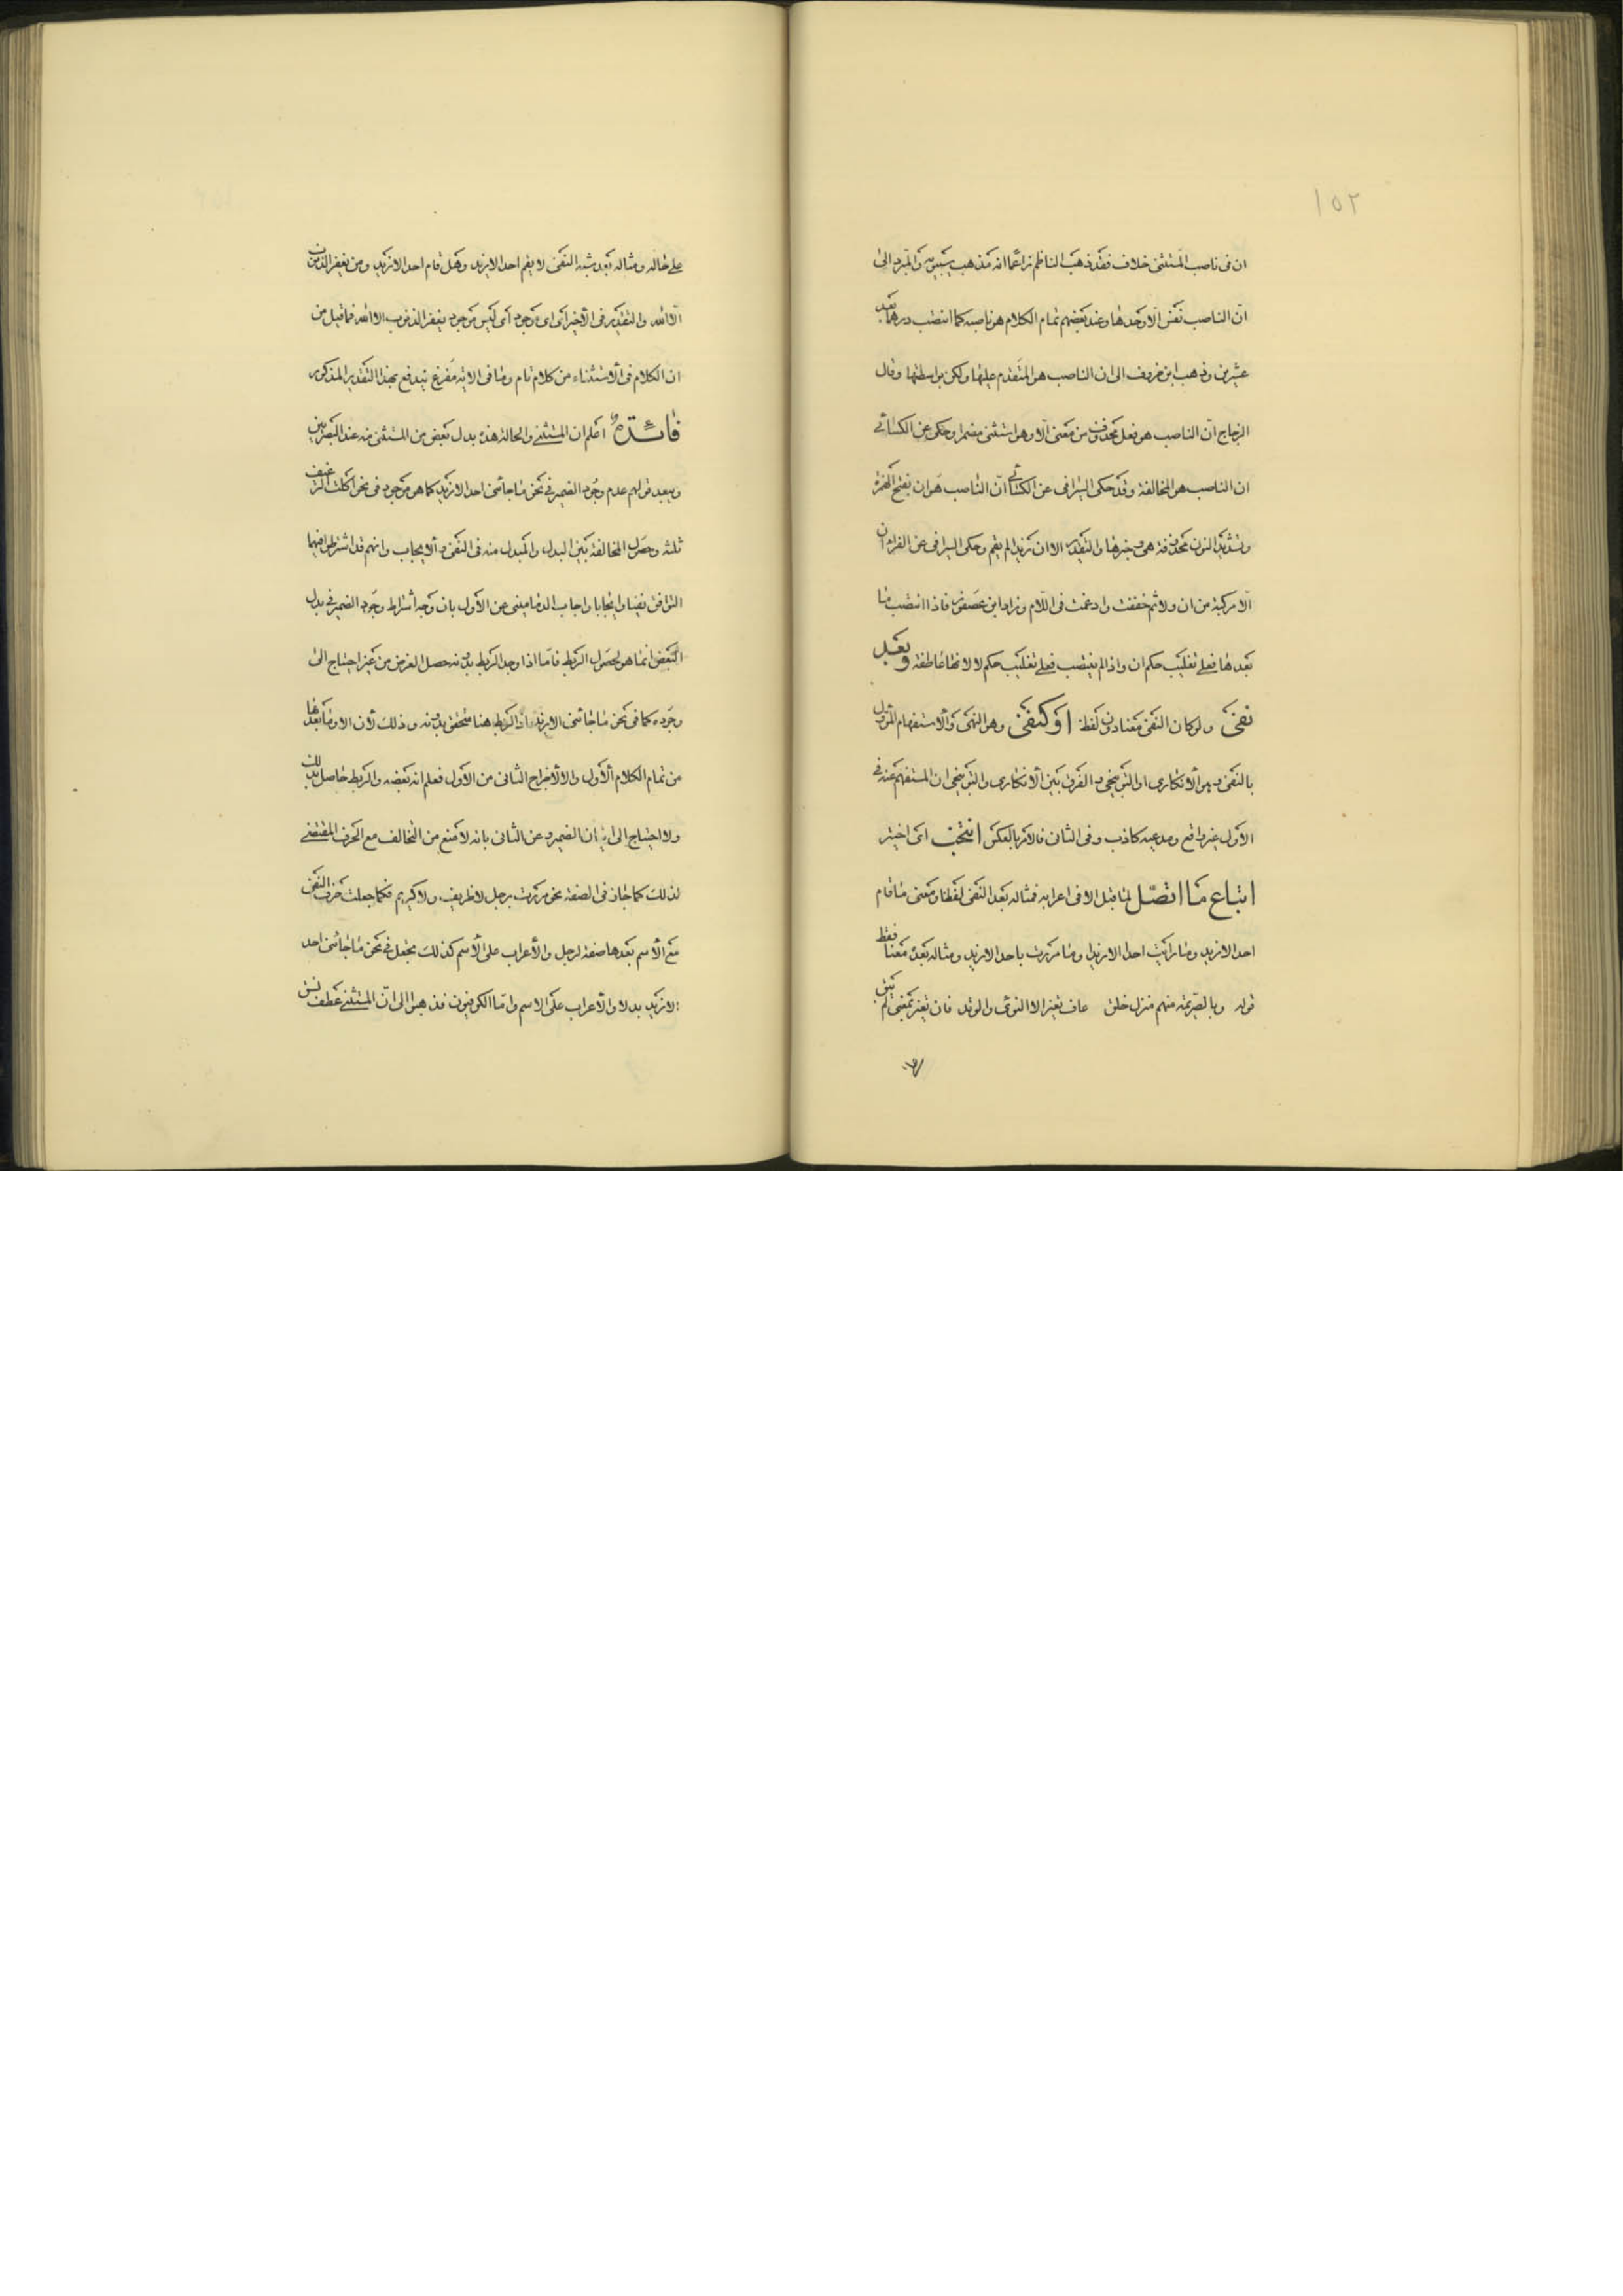 ١٥٢
ان فى ناصب المستثنى خلاف فقد ذهب الناظم زاعما انه مذهب سيبويه والمبرد الى
ان الناصب نفس الا وحدها وعند بعضهم تمام الكلام هو ناصبه كما انتصب درهما بعد
عشرين وذهب ابن خروف الى ان الناصب هو المتقدم عليها ولكن بواسطتها وقال
الزجاج ان الناصب هو فعل محذوف من معنى الا وهو استثنى مضمرا وحكى عن الكسائى
ان الناصب هو المخالفة وقد حكى السيرافى عن الكسائى ان الناصب هو ان بفتح الهمزة
وتشديد النون محذوفة هى وخبرها والتقدير الا ان زيدا لم يقم وحكى السيرافى عن الفراء ان
الا مركبة من ان ولا ثم خففت وادغمت فى اللام وزاد ابن عصفور فاذا انتصب ما
بعدها فعلى تغليب حكم ان واذا لم ينتصب فعلى تغليب حكم لا لانها عاطفة وبعد
نفى ولو كان النفى معنا دون لفظ او كنفى وهو النهى والاستفهام المؤول
بالنفى وهو الانكارى او التوبيخى والفرق بين الانكارى والتوبيخى ان المستفهم عنه فى
الاول غير واقع ومدعيه كاذب وفى الثانى فالامر بالعكس انتخب اى اختير
اتباع ما اتصل لما قبل الا فى اعرابه فمثاله بعد النفى لفظا ومعنى ما قام
احد الا زيد وما رايت احدا الا زيدا وما مررت باحد الا زيد ومثاله بعده معنا فقط
قوله وبالصريمة منهم منزل خلق عاف تغير الا النوى والوتد فان تغير بمعنى لم يبق
على حاله ومثاله بعد شبه النفى لا يقم احد الا زيد وهل قام احد الا زيد ومن يغفر الذنوب
الا الله والتقدير فى الاخير اى ليس موجود يغفر الذنوب الا الله فما قيل من
ان الكلام فى الاستثناء من كلام تام وما فى الاية مفرغ يندفع بهذا التقدير المذكور
فائدة اعلم ان المستثنى والحالة هذه بدل بعض من المستثنى منه عند البصريين
ويبعد قولهم عدم وجود الضمير فى نحو ما جائنى احد الا زيد كما هو موجود فى نحو اكلت الرغيف
ثلثه وحصول المخالفة بين البدل والمبدل منه فى النفى والايجاب وانهم قد اشترطوا فيهما
التوافق نفيا وايجابا واجاب الدمامينى عن الاول بان وجه اشراط وجود الضمير فى بدل
البعض انما هو لحصول الربط فاما اذا وجد الربط بدونه حصل الغرض من غير احتياج الى
وجوده كما فى نحو ما جائنى الا زيد اذ الربط هنا متحقق بدونه وذلك لان الا وما بعدها
من تمام الكلام الاول والا لاخراج الثانى من الاول فعلم انه بعضه والربط حاصل بذلك
ولا احتياج الى ان الضمير وعن الثانى بانه لا منع من التخالف مع الحرف المقتضى
لذلك كما جاز فى الصفة نحو مررت برجل لا ظريف ولا كريم فكما جعلت حرف النفى
مع الاسم بعدها صفة لرجل والاعراب على الاسم كذلك يجعل فى نحو ما جائنى احد
الا زيد بدلا والاعراب على الاسم واما الكوفيون فذهبوا الى ان المستثنى عطف نسق